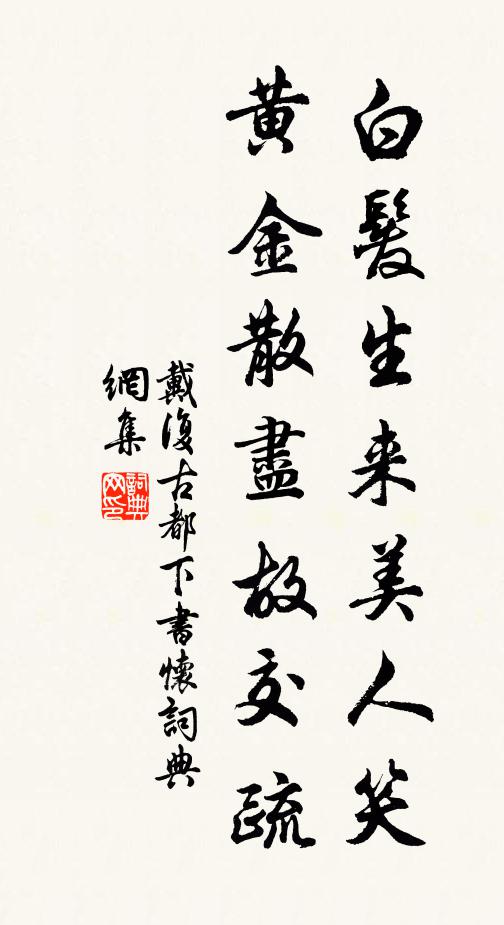 白髮生来美人笑
黄金散盡故交疏
戴復古都下書懷詞典
網集
詞典
网印